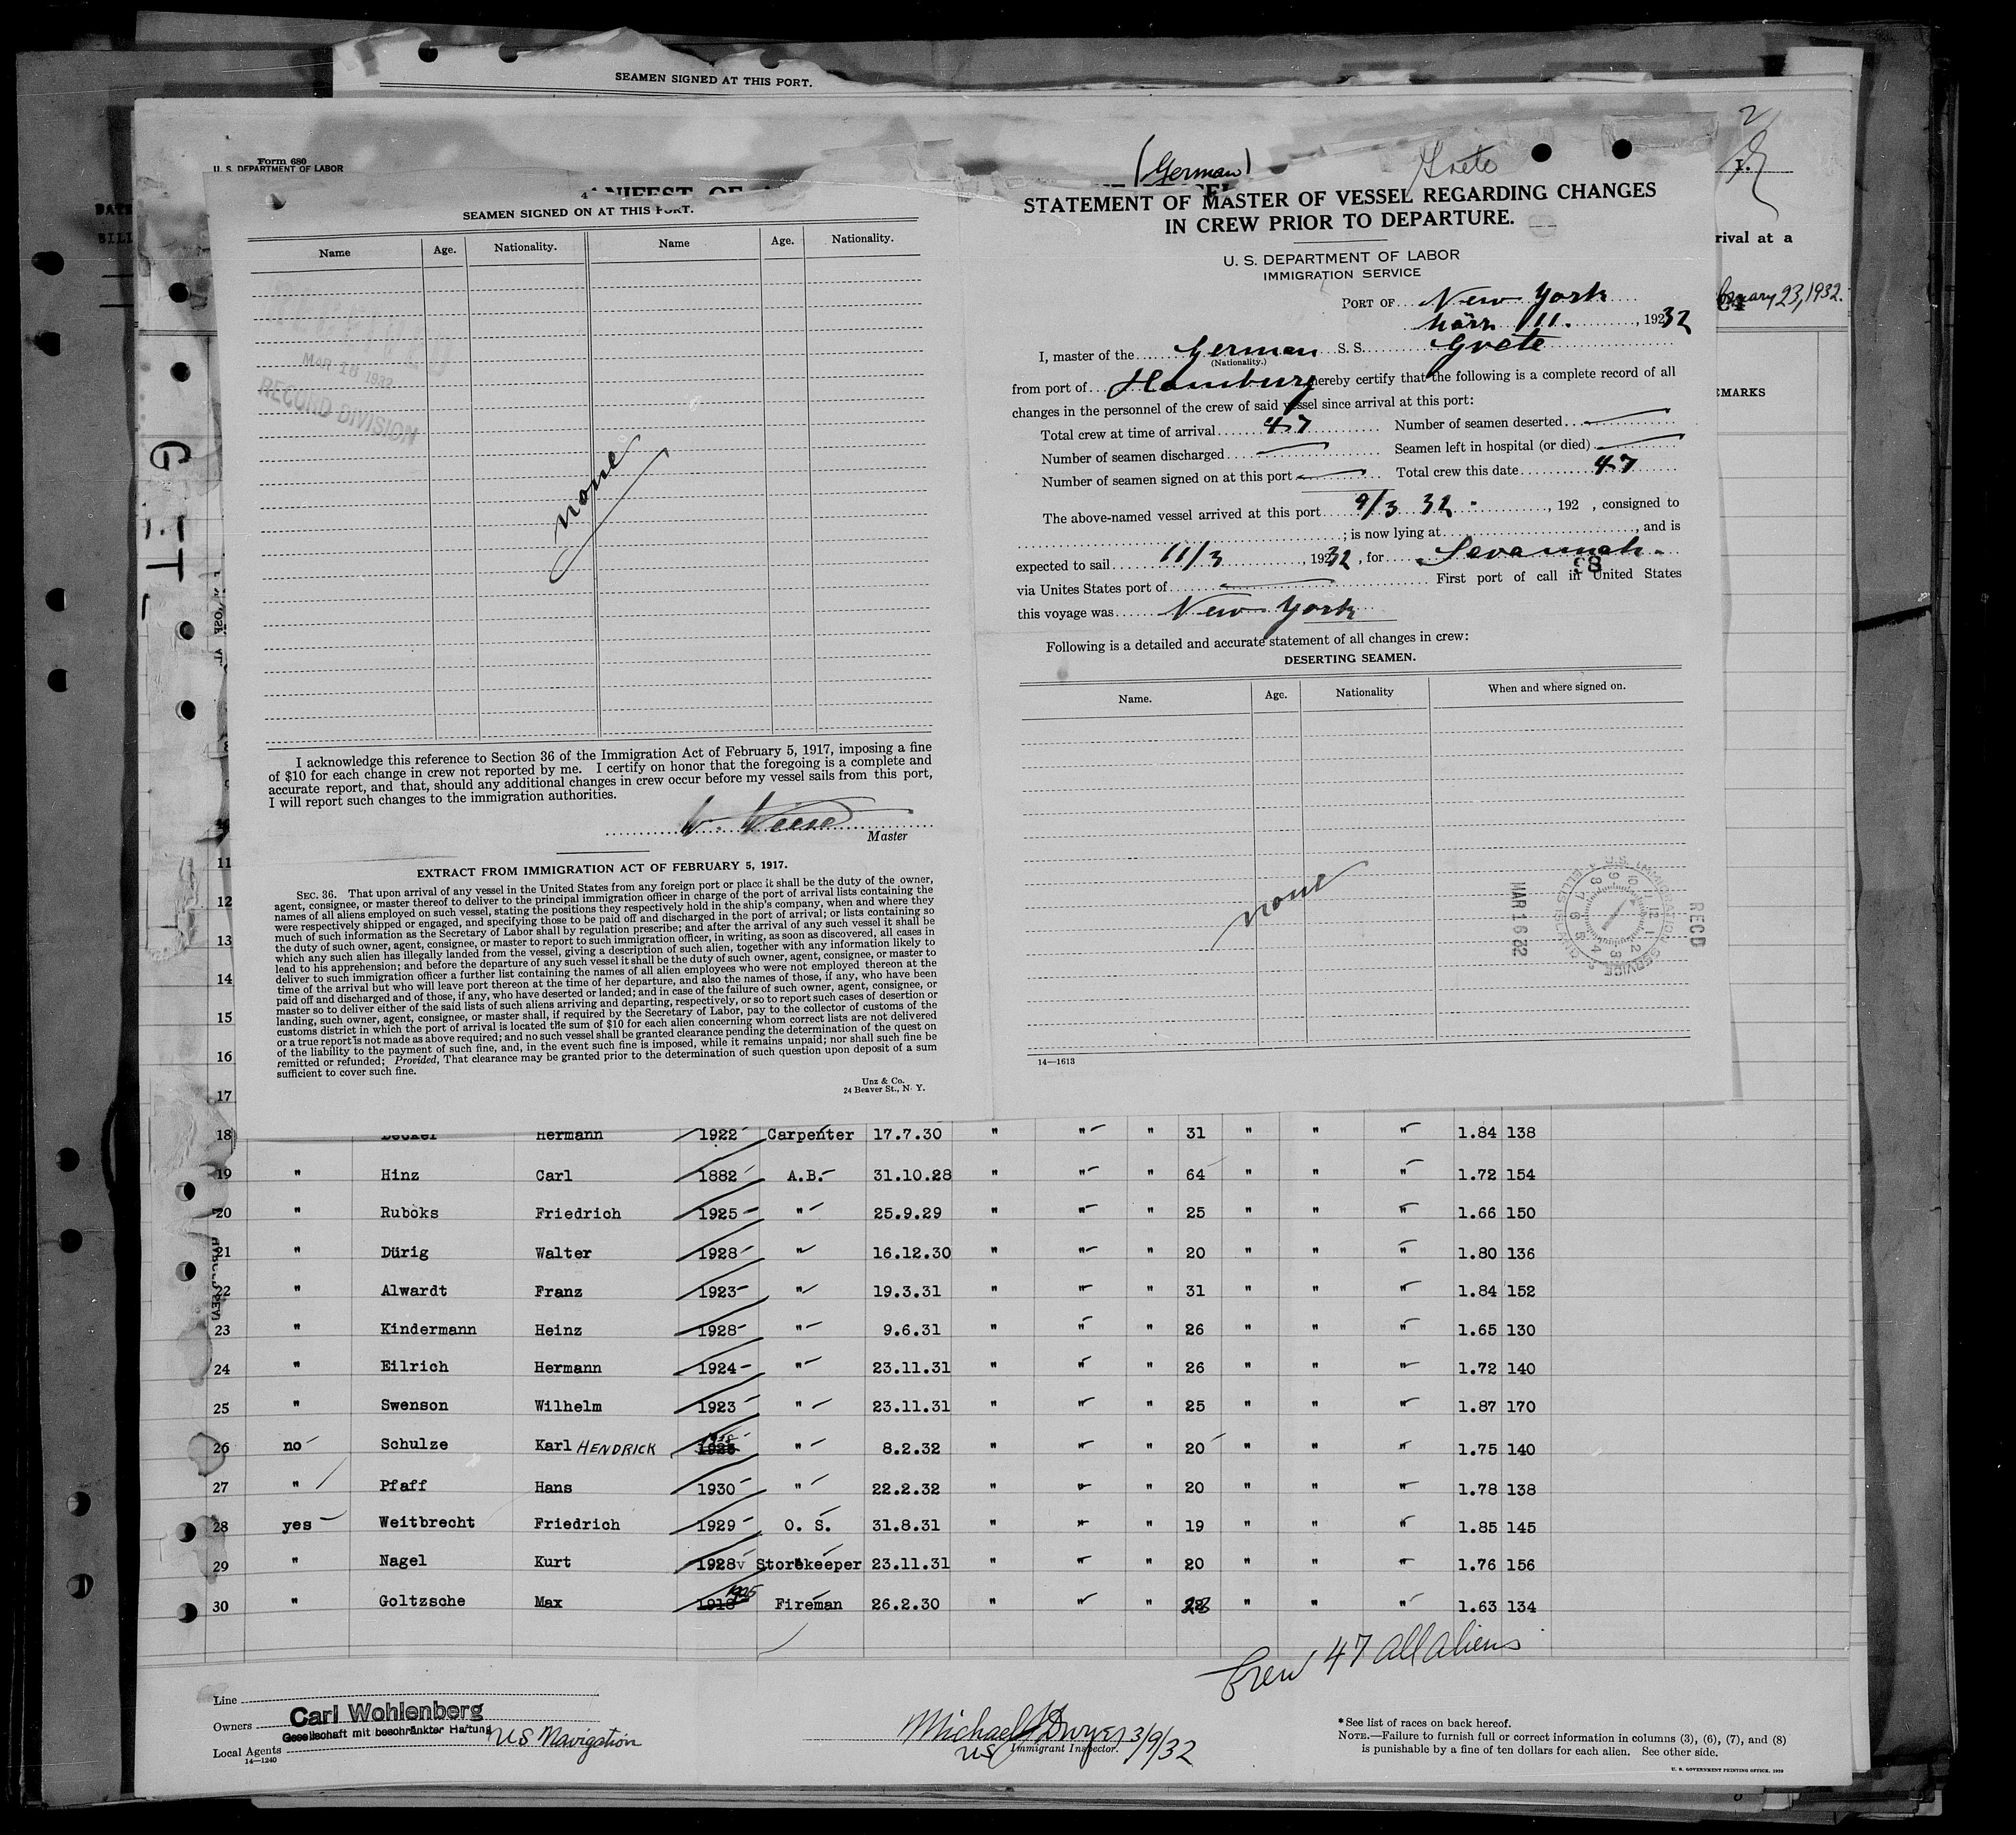 SEAMEN SIGNED AT THIS PORT.
Form 680
U. S. DEPARTMENT OF LABOR
SEAMEN SIGNED ON AT THIS PORT.
Name Age. Nationality. Name Age. Nationality.
MAR 16 1932
RECORD DIVISION
none
I acknowledge this reference to Section 36 of the Immigration Act of February 5, 1917, imposing a fine
of $10 for each change in crew not reported by me. I certify on honor that the foregoing is a complete and
accurate report, and that, should any additional changes in crew occur before my vessel sails from this port,
I will report such changes to the immigration authorities.
Master
EXTRACT FROM IMMIGRATION ACT OF FEBRUARY 5, 1917.
SEC. 36. That upon arrival of any vessel in the United States from any foreign port or place it shall be the duty of the owner,
agent, consignee, or master thereof to deliver to the principal immigration officer in charge of the port of arrival lists containing the
names of all aliens employed on such vessel, stating the positions they respectively hold in the ship's company, when and where they
were respectively shipped or engaged, and specifying those to be paid off and discharged in the port of arrival; or lists containing so
much of such information as the Secretary of Labor shall by regulation prescribe; and after the arrival of any such vessel it shall be
the duty of such owner, agent, consignee, or master to report to such immigration officer, in writing, as soon as discovered, all cases in
which any such alien has illegally landed from the vessel, giving a description of such alien, together with any information likely to
lead to his apprehension; and before the departure of any such vessel it shall be the duty of such owner, agent, consignee, or master to
deliver to such immigration officer a further list containing the names of all alien employees who were not employed thereon at the
time of the arrival but who will leave port thereon at the time of her departure, and also the names of those, if any, who have been
paid off and discharged and of those, if any, who have deserted or landed; and in case of the failure of such owner, agent, consignee, or
master so to deliver either of the said lists of such aliens arriving and departing, respectively, or so to report such cases of desertion or
landing, such owner, agent, consignee, or master shall, if required by the Secretary of Labor, pay to the collector of customs of the
customs district in which the port of arrival is located the sum of $10 for each alien concerning whom correct lists are not delivered
or a true report is not made as above required; and no such vessel shall be granted clearance pending the determination of the quest on
of the liability to the payment of such fine, and, in the event such fine is imposed, while it remains unpaid; nor shall such fine be
remitted or refunded; Provided, That clearance may be granted prior to the determination of such question upon deposit of a sum
sufficient to cover such fine.
Unz & Co.
24 Beaver St., N. Y.
(German)
Grete
STATEMENT OF MASTER OF VESSEL REGARDING CHANGES
IN CREW PRIOR TO DEPARTURE.
U. S. DEPARTMENT OF LABOR
IMMIGRATION SERVICE
PORT OF New York
März 11. , 1932
I, master of the German S. S. Grete
(Nationality.)
from port of Hamburg hereby certify that the following is a complete record of all
changes in the personnel of the crew of said vessel since arrival at this port:
Total crew at time of arrival 47 Number of seamen deserted —
Number of seamen discharged — Seamen left in hospital (or died) —
Number of seamen signed on at this port — Total crew this date 47
The above-named vessel arrived at this port 9/3 32 , 192 , consigned to
; is now lying at , and is
expected to sail 11/3 , 1932 , for Savannah
via Unites States port of — First port of call in United States
this voyage was New York
Following is a detailed and accurate statement of all changes in crew:
DESERTING SEAMEN.
Name. Age. Nationality When and where signed on.
none
MAR 16 32
REC'D
14—1613
rival at a
bruary 23, 1932.
EMARKS
11
12
13
14
15
16
17
18 Hermann 1922 Carpenter 17.7.30 " " " 31 " " " 1.84 138
19 " Hinz Carl 1882 A.B. 31.10.28 " " " 64 " " " 1.72 154
20 " Ruboks Friedrich 1925 " 25.9.29 " " " 25 " " " 1.66 150
21 " Dürig Walter 1928 " 16.12.30 " " " 20 " " " 1.80 136
22 " Alwardt Franz 1923 " 19.3.31 " " " 31 " " " 1.84 152
23 " Kindermann Heinz 1928 " 9.6.31 " " " 26 " " " 1.65 130
24 " Eilrich Hermann 1924 " 23.11.31 " " " 26 " " " 1.72 140
25 " Swenson Wilhelm 1923 " 23.11.31 " " " 25 " " " 1.87 170
26 no Schulze Karl HENDRICK " 8.2.32 " " " 20 " " " 1.75 140
27 " Pfaff Hans 1930 " 22.2.32 " " " 20 " " " 1.78 138
28 yes Weitbrecht Friedrich 1929 O. S. 31.8.31 " " " 19 " " " 1.85 145
29 " Nagel Kurt 1928 Storekeeper 23.11.31 " " " 20 " " " 1.76 156
30 " Goltzsche Max 1925 Fireman 26.2.30 " " " " " " 1.63 134
Crew 47 all aliens
Line
Owners Carl Wohlenberg
Gesellschaft mit beschränkter Haftung
Local Agents US Navigation
14—1240
Michael J Dwyer 3/9/32
US Immigrant Inspector.
* See list of races on back hereof.
NOTE.—Failure to furnish full or correct information in columns (3), (6), (7), and (8)
is punishable by a fine of ten dollars for each alien. See other side.
U. S. GOVERNMENT PRINTING OFFICE. 1929